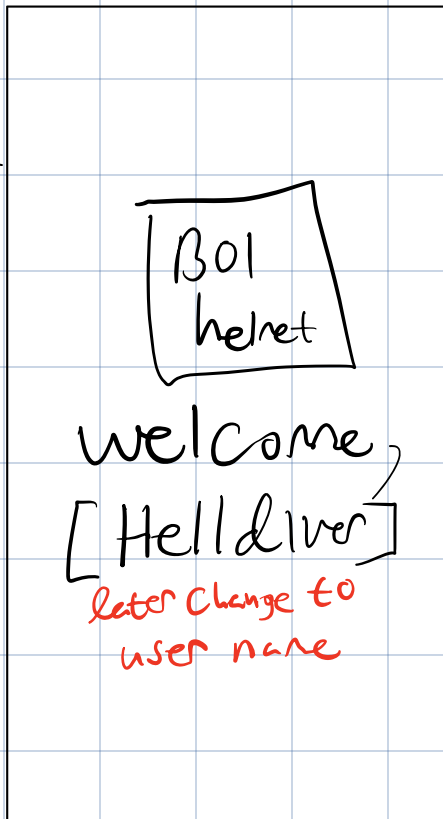 B01
helmet
welcome,
[Helldiver]
later change to
user name